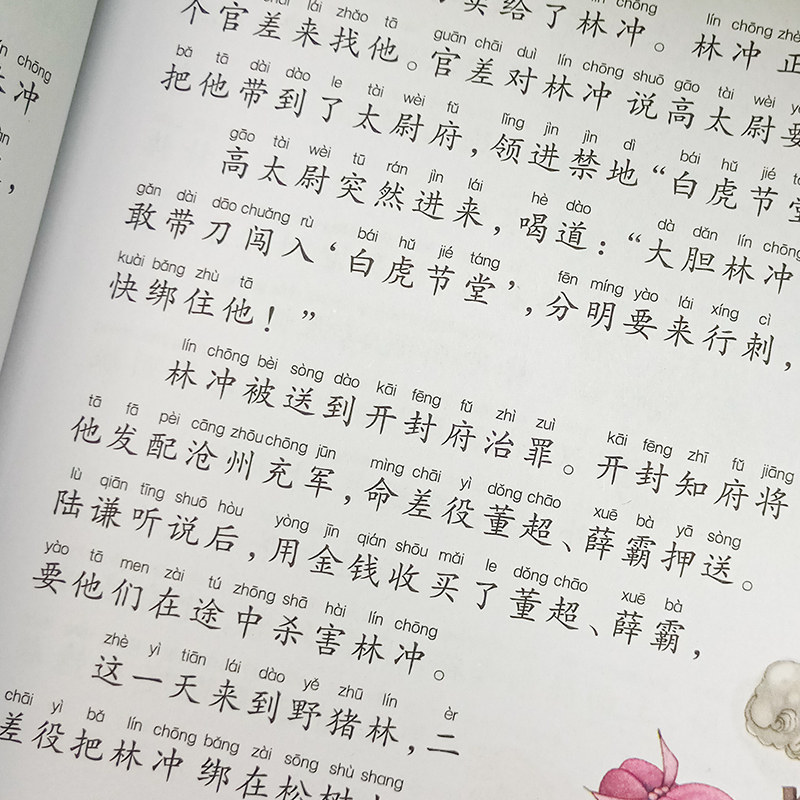 卖给了林冲。林冲正
lái zhǎo tā guān chāi duì lín chōng shuō gāo tài wèi yào
个官差来找他。官差对林冲说高太尉要
bǎ tā dài dào le tài wèi fǔ lǐng jìn jìn dì bái hǔ jié
把他带到了太尉府，领进禁地“白虎节堂
gāo tài wèi tū rán jìn lái hè dào dà dǎn lín chōng
高太尉突然进来，喝道：“大胆林冲
gǎn dài dāo chuǎng rù bái hǔ jié táng fēn míng yào lái xíng cì
敢带刀闯入‘白虎节堂’，分明要来行刺，
kuài bǎng zhù tā
快绑住他！”
lín chōng bèi sòng dào kāi fēng fǔ zhì zuì kāi fēng zhī fǔ jiāng
林冲被送到开封府治罪。开封知府将
tā fā pèi cāng zhōu chōng jūn mìng chāi yì dǒng chāo xuē bà yā sòng
他发配沧州充军，命差役董超、薛霸押送。
lù qiān tīng shuō hòu yòng jīn qián shōu mǎi le dǒng chāo xuē bà
陆谦听说后，用金钱收买了董超、薛霸，
yào tā men zài tú zhōng shā hài lín chōng
要他们在途中杀害林冲。
zhè yì tiān lái dào yě zhū lín èr
这一天来到野猪林，二
chāi yì bǎ lín chōng bǎng zài sōng shù shang
差役把林冲绑在松树